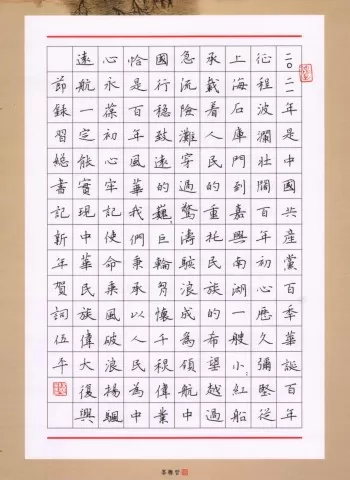 二〇二一年是中國共產黨百秊華誕百年
征程波瀾壯闊百年初心歷久彌堅從
上海石庫門到嘉興南湖一艘小:紅船
承載着人民的重托民族的希望越過
急流險灘穿過驚濤駭浪成為領航中
國行穩致遠的巍:巨輪胸懷千秋偉業
恰是百年風華我們秉承以人民為中
心永葆初心牢記使命乘風破浪揚颿
遠航一定能實現中華民族偉大復興
節錄習總書記新年賀詞伍平